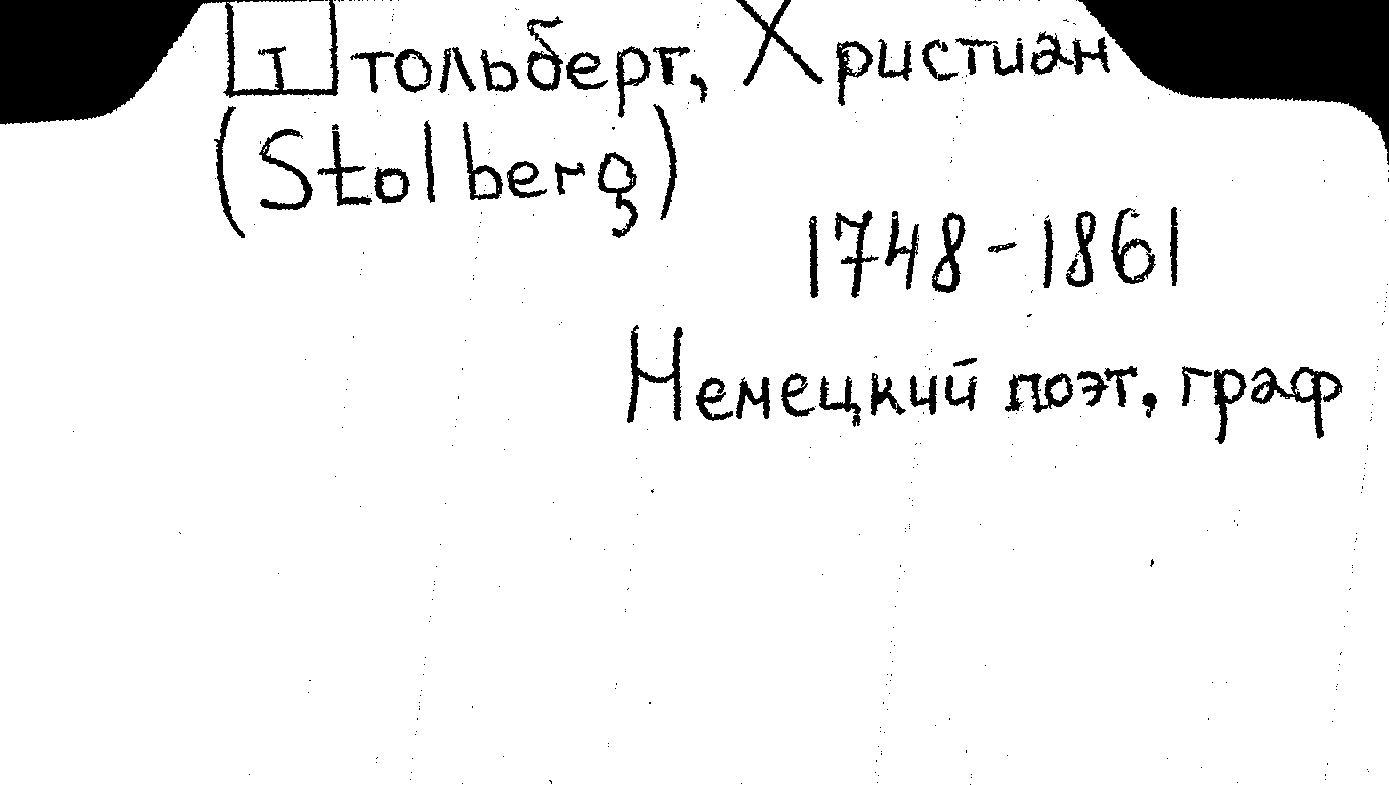 Штольберг, Христиан
(Stolberg)
1748-1861
Немецкий поэт, граф